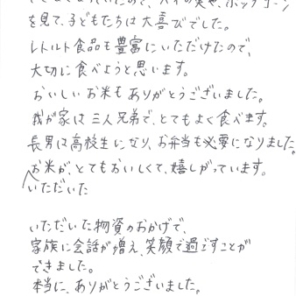 を見て、子どもたちは大喜びでした。
レトルト食品も豊富にいただけたので、
大切に食べようと思います。
おいしいお米もありがとうございました。
我が家は三人兄弟で、とてもよく食べます。
長男は高校生になり、お弁当も必要になりました。
お米が、とてもおいしくて、嬉しがっています。
いただいた
いただいた物資のおかげで、
家族に会話が増え、笑顔で過ごすことが
できました。
本当に、ありがとうございました。